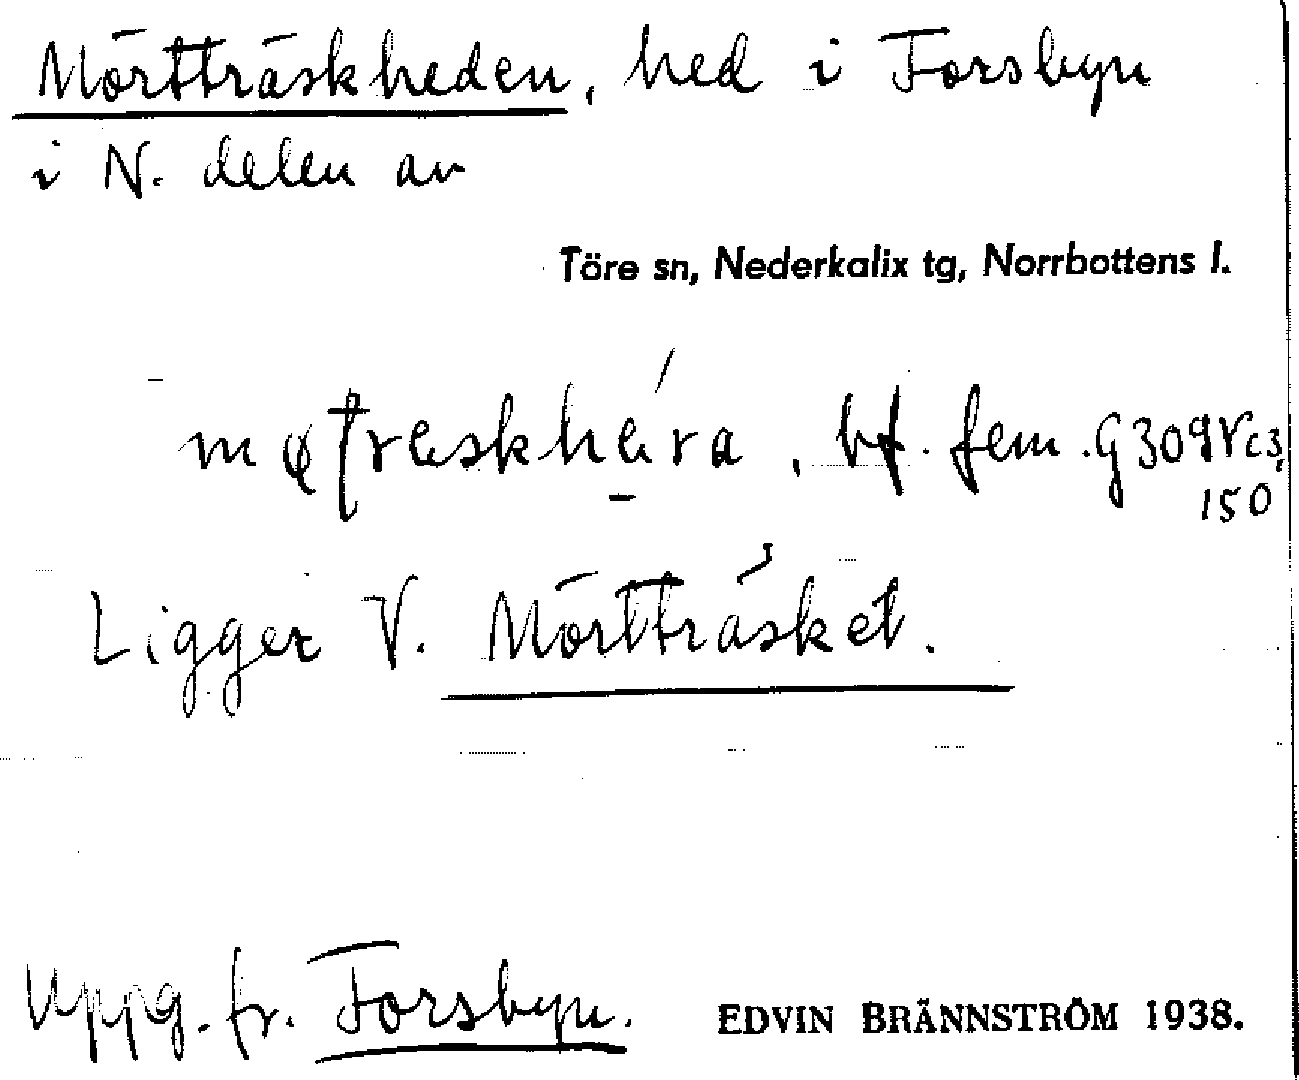 Mörtträskheden, hed i Forsbyn
i N. delen av
Töre sn, Nederkalix tg, Norrbottens l.
bf. fem. G309Vc3,
150
Ligger V. Mörtträsket.
Uppg. fr. Forsbyn. EDVIN BRÄNNSTRÖM 1938.